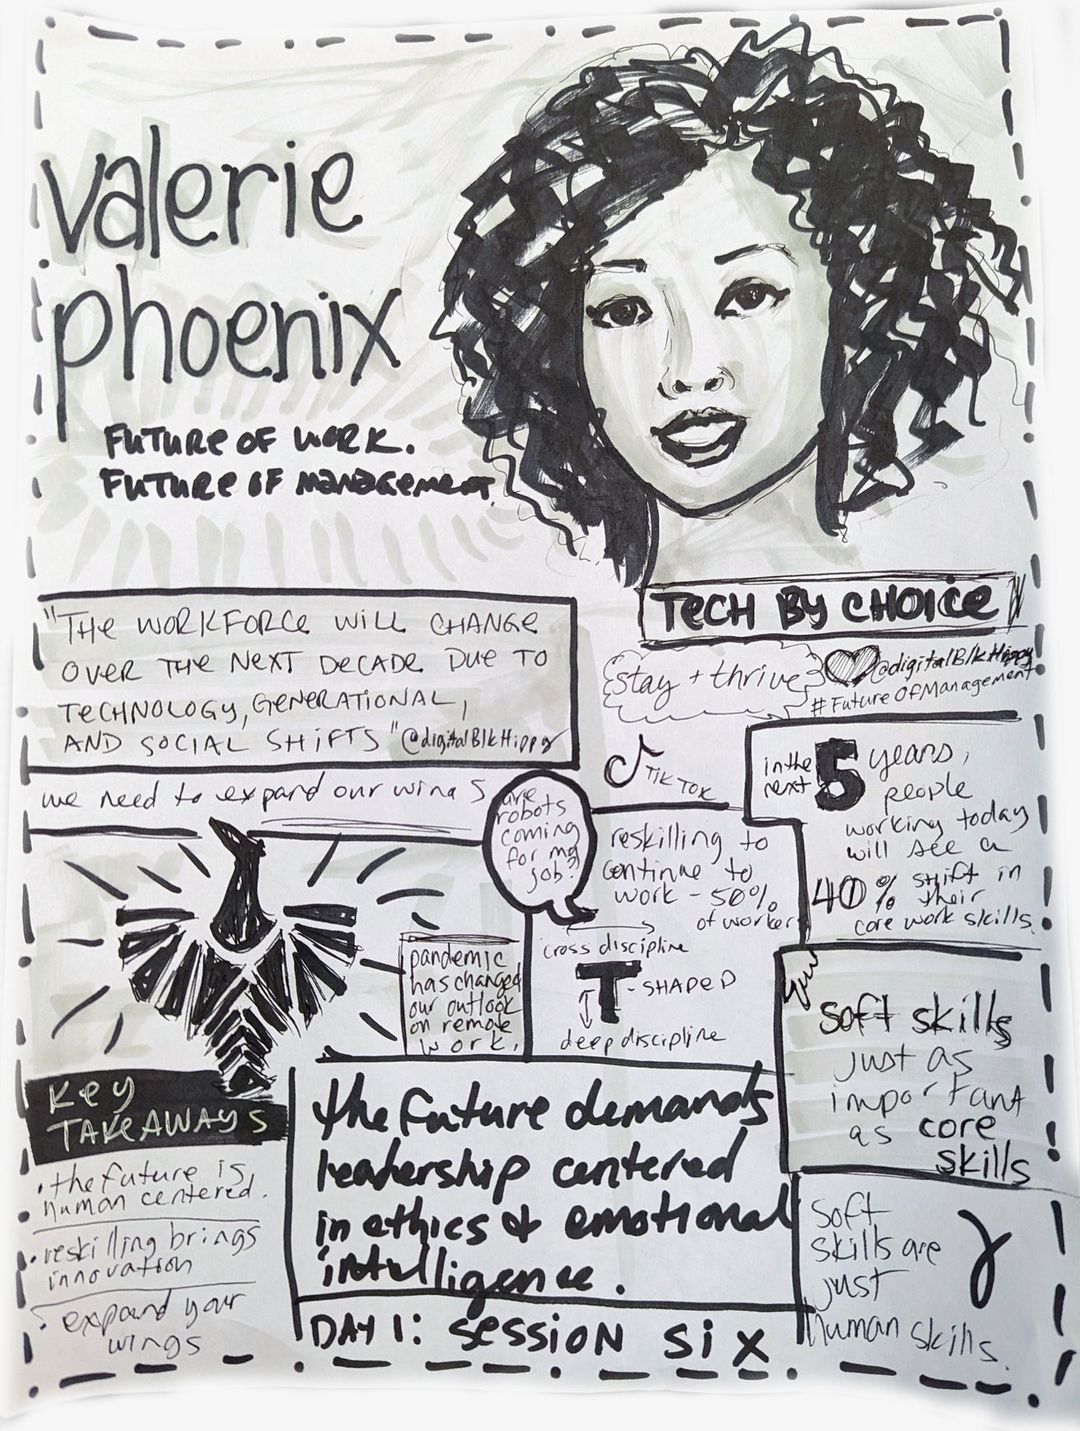 valerie
phoenix
FUTURE OF WORK.
FUTURE OF MANAGEMENT
TECH BY CHOICE
"THE WORKFORCE WILL CHANGE
OVER THE NEXT DECADE DUE TO
TECHNOLOGY, GENERATIONAL,
AND SOCIAL SHIFTS" @digitalBlkHippy
stay + thrive
@digitalBlkHippy
#FutureOfManagement
TIKTOK
we need to expand our wings
are
robots
coming
for my
job?
reskilling to
continue to
work - 50%
of workers
in the
next
5 years,
people
working today
will see a
40% shift in
their
core work skills.
pandemic
has changed
our outlook
on remote
work.
cross discipline
T-SHAPED
deep discipline
soft skills
just as
important
as core
skills
KEY
TAKEAWAYS
. the future is
human centered.
. reskilling brings
innovation
. expand your
wings
the future demands
leadership centered
in ethics & emotional
intelligence.
soft
skills are
just
human skills.
DAY 1: SESSION SIX